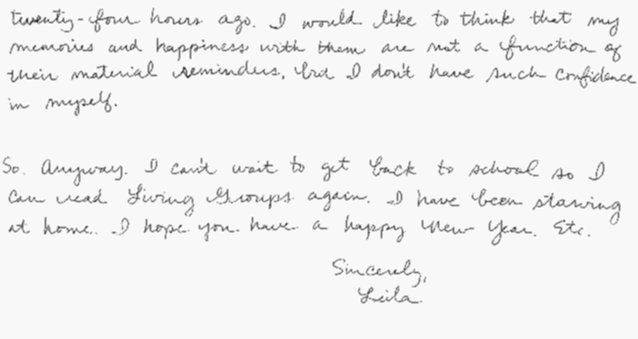 twenty-four hours ago. I would like to think that my
memories and happiness with them are not a function of
their material reminders, but I don't have such confidence
in myself.
So. Anyway. I can't wait to get back to school so I
can read Living Groups again. I have been starving
at home. I hope you have a happy New Year. Etc.
Sincerely,
Leila.